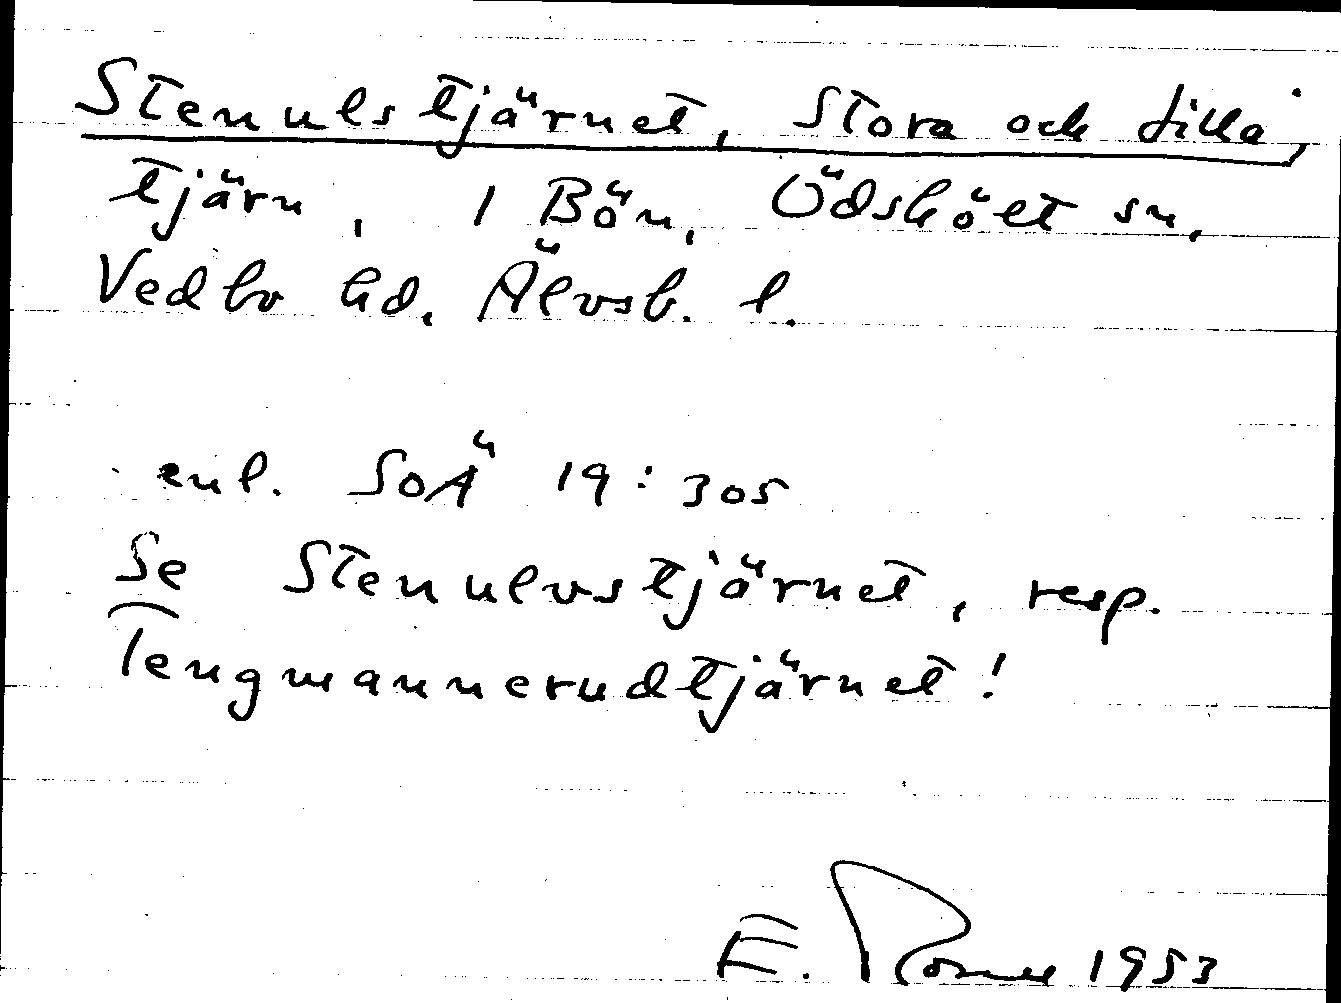 Stenulstjärnet, Stora och Lilla,
tjärn, i Bön, Ödskölt sn,
Vedbo hd. Älvsb. l.
enl. SOÄ 19:305
Se Stenulvstjärnet, resp.
Tengmannerudtjärnet!
E. 1953